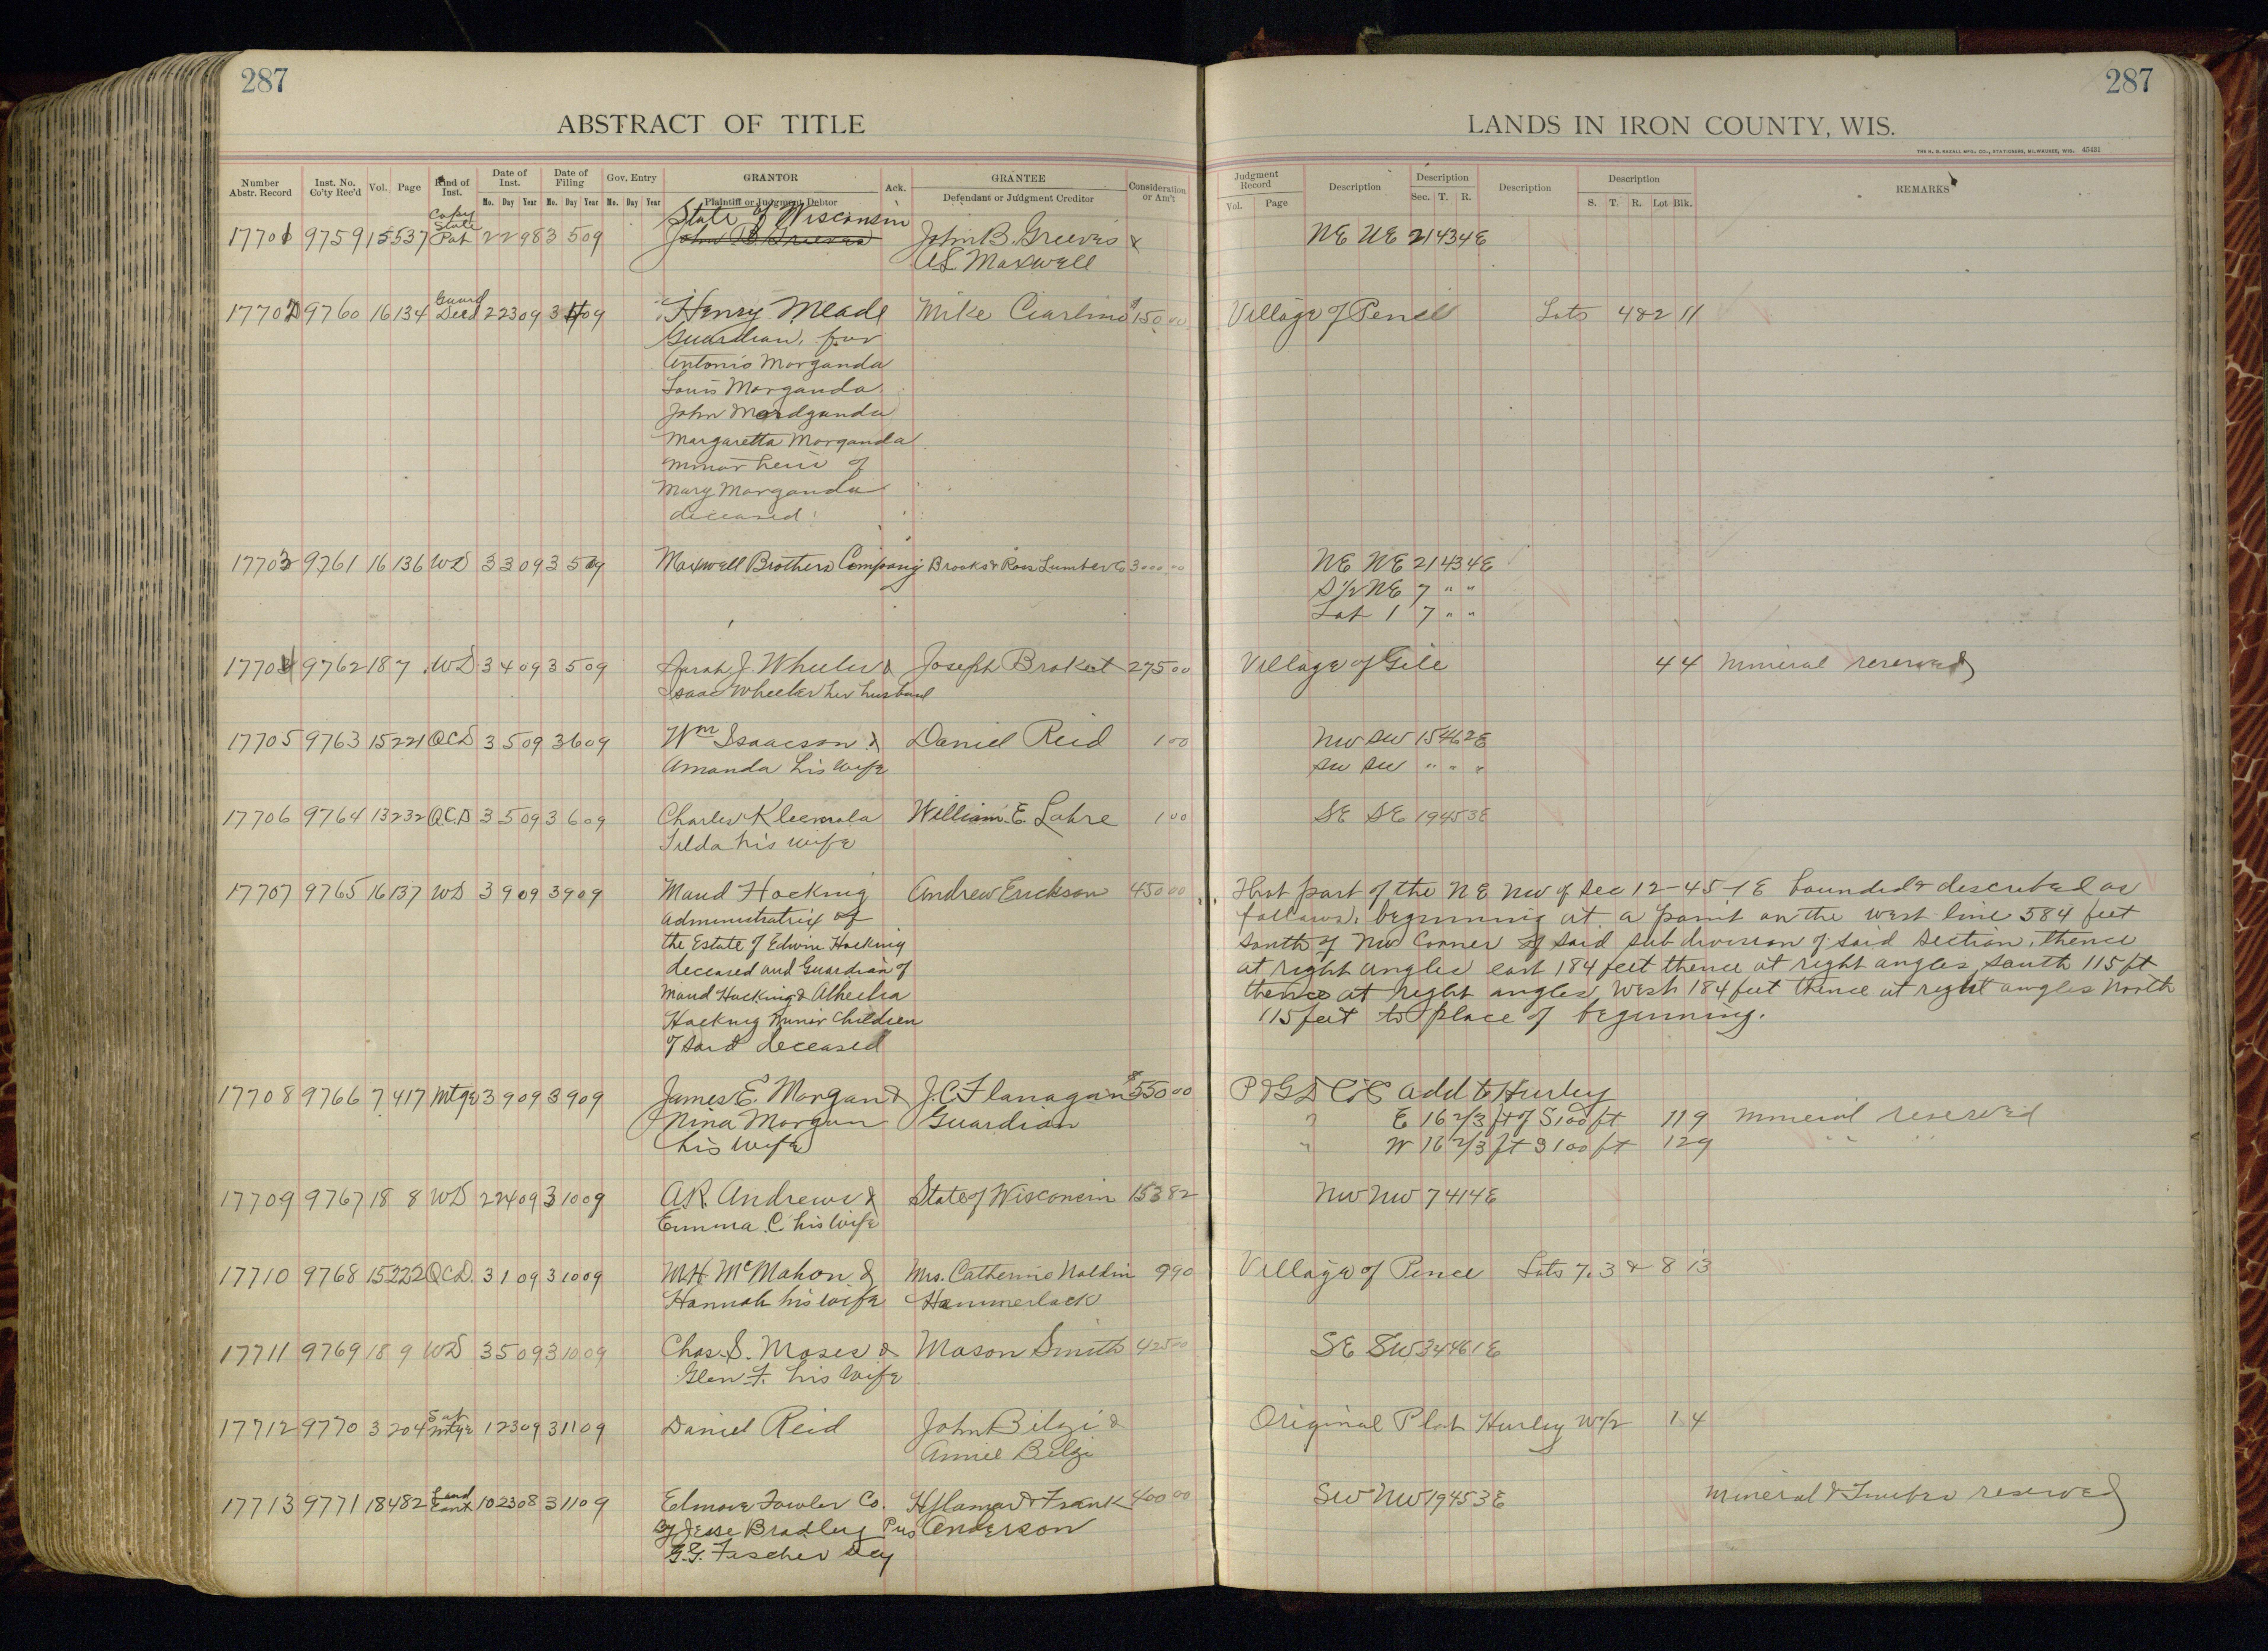 287
ABSTRACT OF TITLE
Number Abstr. Record
Inst. No. Co'ty Rec'd
Vol.
Page
Kind of Inst.
Date of Inst.
Date of Filing
Gov. Entry
GRANTOR
Ack.
GRANTEE
Consideration or Am't
Mo. Day Year Mo. Day Year Mo. Day Year
Plaintiff or Judgment Debtor
Defendant or Judgment Creditor
17701 9759 15 537 Copy State Pat 2 2 98 3 5 09 State of Wisconsin John B. Greeves &
John B Greeves
A S. Maxwell
17702 9760 16 134 Guard Deed 2 23 09 3 4 09 Henry Meade Mike Ciarlino $150.00
Guardian, for
Antonio Morganda
Louis Morganda
John Mordganda
Margaretta Morganda
minor heirs of
Mary Morganda
deceased
17703 9761 16 136 WD 3 3 09 3 5 09 Maxwell Brothers Company Brooks & Ross Lumber Co 3000 00
17704 9762 18 7 WD 3 4 09 3 5 09 Sarah J. Wheeler & Joseph Broket 275 00
Isaac Wheeler her husband
17705 9763 15 221 QCD 3 5 09 3 6 09 Wm Isaacson & Daniel Reid 1 00
Amanda his wife
17706 9764 13 232 Q.C.D 3 5 09 3 6 09 Charles Kleemola William E. Lahre 1 00
Tilda his wife
17707 9765 16 137 WD 3 9 09 3 9 09 Maud Hocking Andrew Erickson 450 00
administratrix of
the Estate of Edwin Hocking
deceased and Guardian of
Maud Hocking &
Hocking minor Children
of said deceased
17708 9766 7 417 Mtge 3 9 09 3 9 09 James E. Morgan & J.C. Flanagan $550 00
Nina Morgan Guardian
his wife
17709 9767 18 8 WD 2 24 09 3 10 09 A.R. Andrews & State of Wisconsin 153 82
Emma C. his wife
17710 9768 15 222 QCD. 3 1 09 3 10 09 M.H. McMahon & Mrs. Catherine Naldin 9 90
Hannah his wife Hammerlack
17711 9769 18 9 WD 3 5 09 3 10 09 Chas. S. Moses & Mason Smith 425 00
Glen F. his wife
17712 9770 3 204 Sat Mtge 1 23 09 3 11 09 Daniel Reid John Bilgi &
Annie Bilgi
17713 9771 18 482 Land Cont 10 23 08 3 11 09 Elmore Fowler Co. & Frank 400 00
By Jesse Bradley Pres Anderson
G.G. Fascher Secy
287
LANDS IN IRON COUNTY, WIS.
THE H. G. RAZALL MFG. CO., STATIONERS, MILWAUKEE, WIS. 45431
Judgment Record
Description
Description
Description
Description
REMARKS
Vol. Page
Sec. T. R.
S. T. R. Lot Blk.
NE NE 21 43 4E
Village of Pence Lots 4 & 2 11
NE NE 21 43 4E
S 1/2 NE 7 " "
Lot 1 7 " "
Village of Gile 4 4 Mineral reserved
NW SW 15 46 2E
SW SW " " "
SE SE 19 45 3E
That part of the NE NW of Sec 12-45-1E bounded & described as
follows, beginning at a point on the west line 584 feet
south of NW Corner of said subdivision of said section, thence
at right angles east 184 feet thence at right angles south 115 ft
thence at right angles west 184 feet thence at right angles North
115 feet to place of beginning.
P & G D Co's Add to Hurley
" E 16 2/3 ft of S 100 ft 11 9 Mineral reserved
" W 16 2/3 ft S 100 ft 12 9 " "
NW NW 7 41 4E
Village of Pence Lots 7. 3 & 8 13
SE SW 34 46 1E
Original Plat Hurley W 1/2 1 4
SW NW 19 45 3E Mineral & Timber reserved